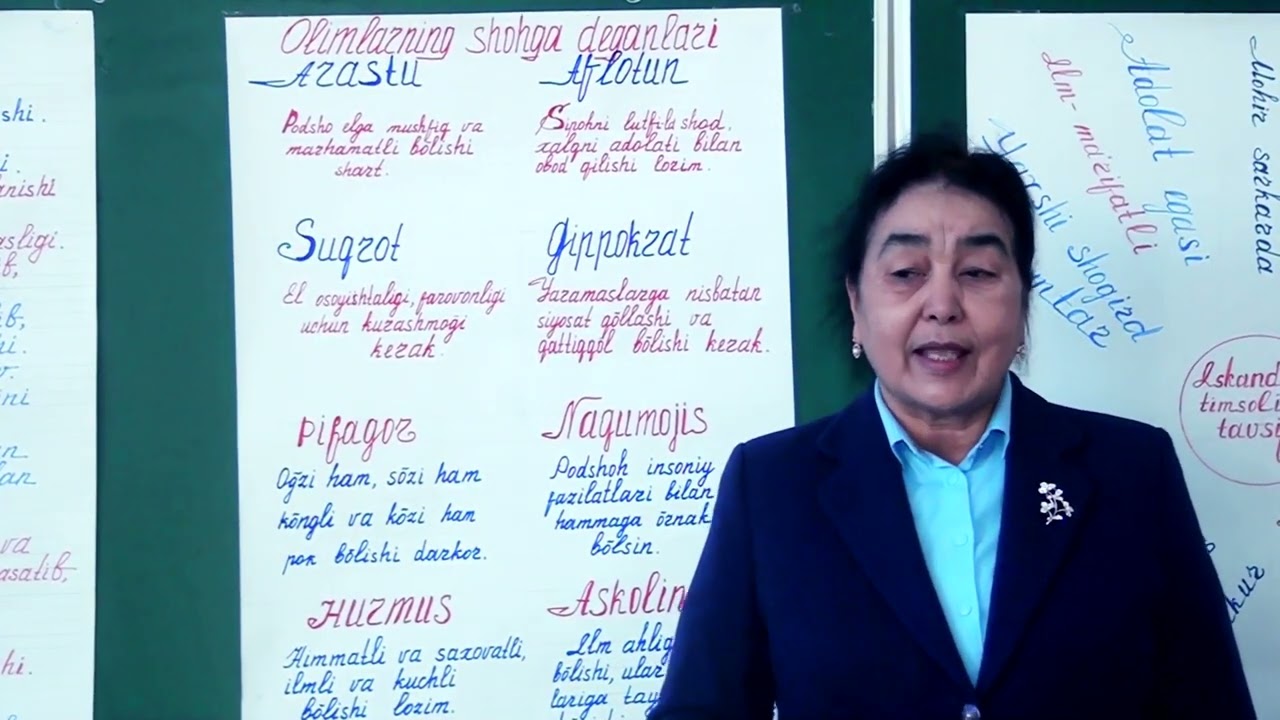 shi.
i.
znishi
asligi.
b,
ib,
hi.
v.
ini
an
lan
va
asatib,
hi.
Olimlarning shohga deganlari
Arastu
Podsho elga mushfiq va
marhamatli bōlishi
shart.
Aflotun
Sipohni lutfila shod,
xalqni adolati bilan
obod qilishi lozim.
Suqrot
El osoyishtaligi, farovonligi
uchun kurashmoḡi
kerak.
Gippokrat
Yaramaslarga nisbatan
siyosat qōllashi va
qattiqqōl bōlishi kerak.
Pifagor
Oḡzi ham, sōzi ham
kōngli va kōzi ham
pok bōlishi darkor.
Naqumojis
Podshoh insoniy
fazilatlari bilan
hammaga ōrnak
bōlsin.
Hurmus
Himmatli va saxovatli,
ilmli va kuchli
bōlishi lozim.
Askolin
Ilm ahlig
bōlishi, ular
lariga tay
Mohir sarkarda
Adolat egasi
Ilm-ma'rifatli
Yaxshi shogird
Iskand
timsoli
tavsi
kur